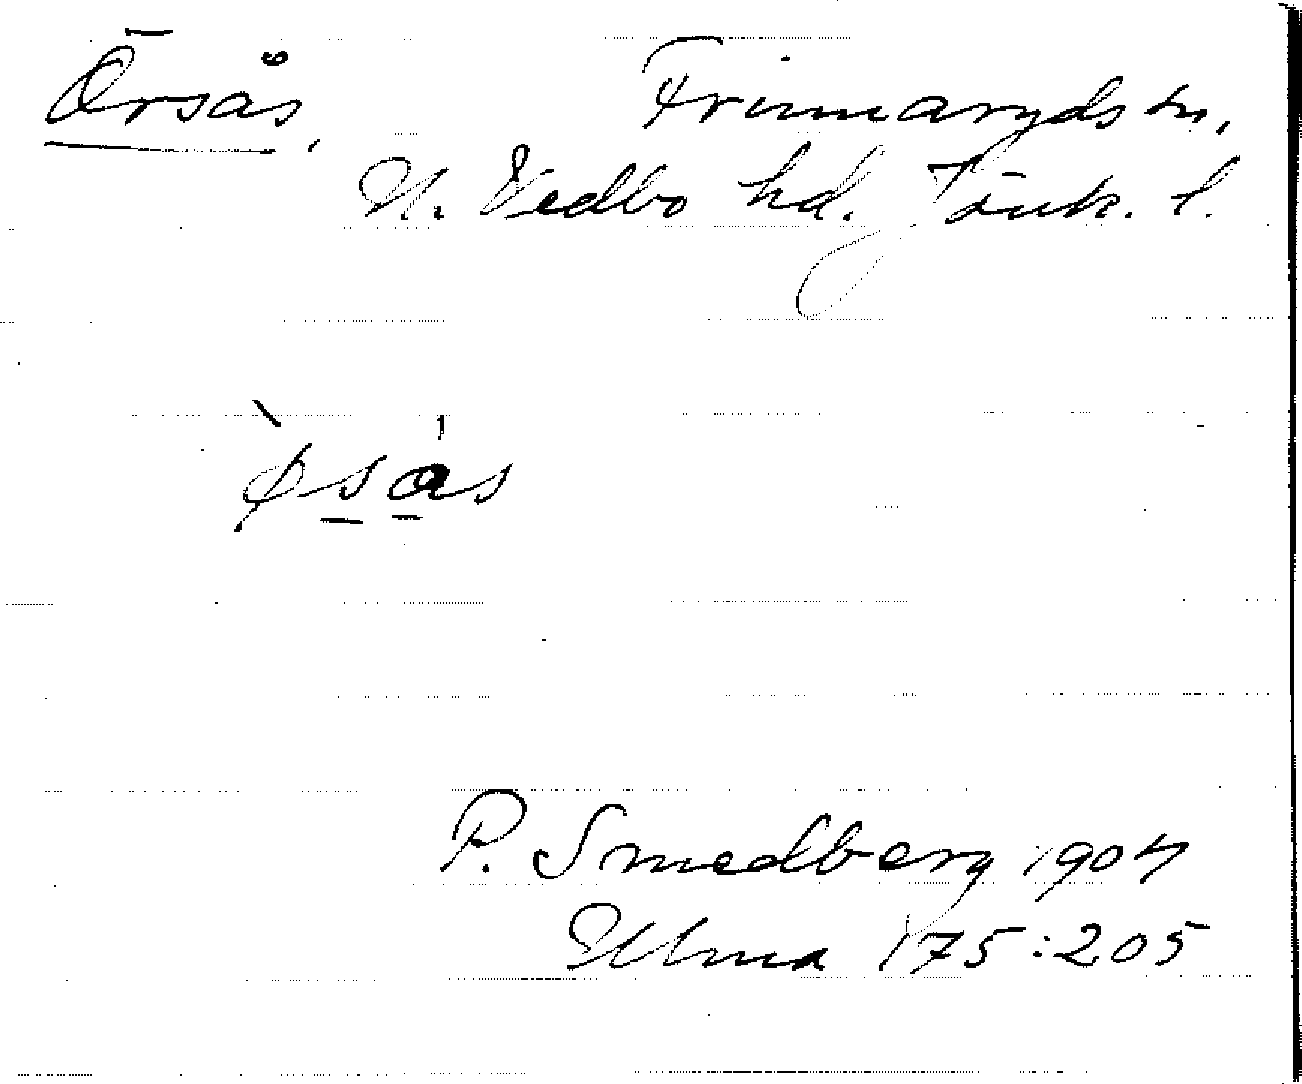 Örsås, Frinnaryds sn,
N. Vedbo hd. Jönk. l.
P. Smedberg 1904
Ulma 175:205